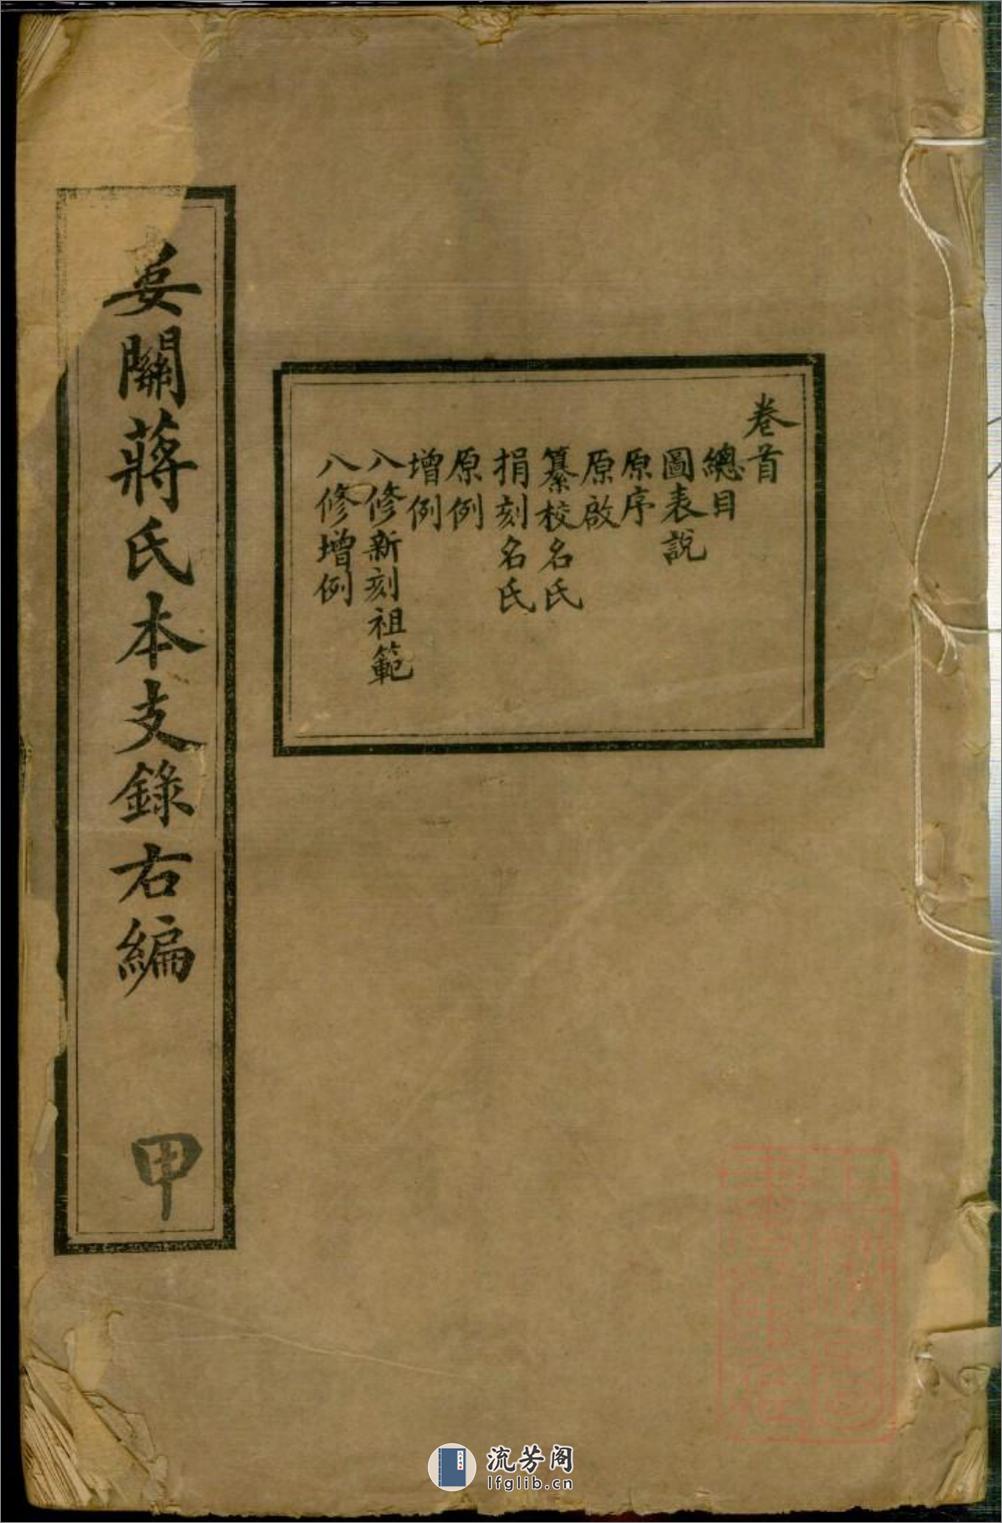 卷首
總目
圖表說
原序
原啟
纂校名氏
捐刻名氏
原例
增例
八修新刻祖範
八修增例
婁關蔣氏本支錄右編 甲
流芳阁
lfglib.cn